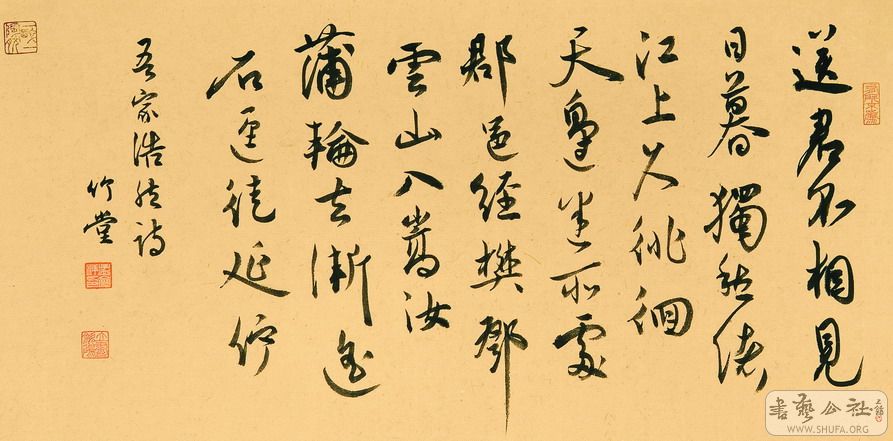 送君不相見
日暮獨愁緒
江上久徘徊
天邊迷所處
郡邑經樊鄧
雲山入嵩汝
蒲輪去漸遙
石逕徒延佇
吾家浩然詩
竹堂
書藝公社
WWW.SHUFA.ORG